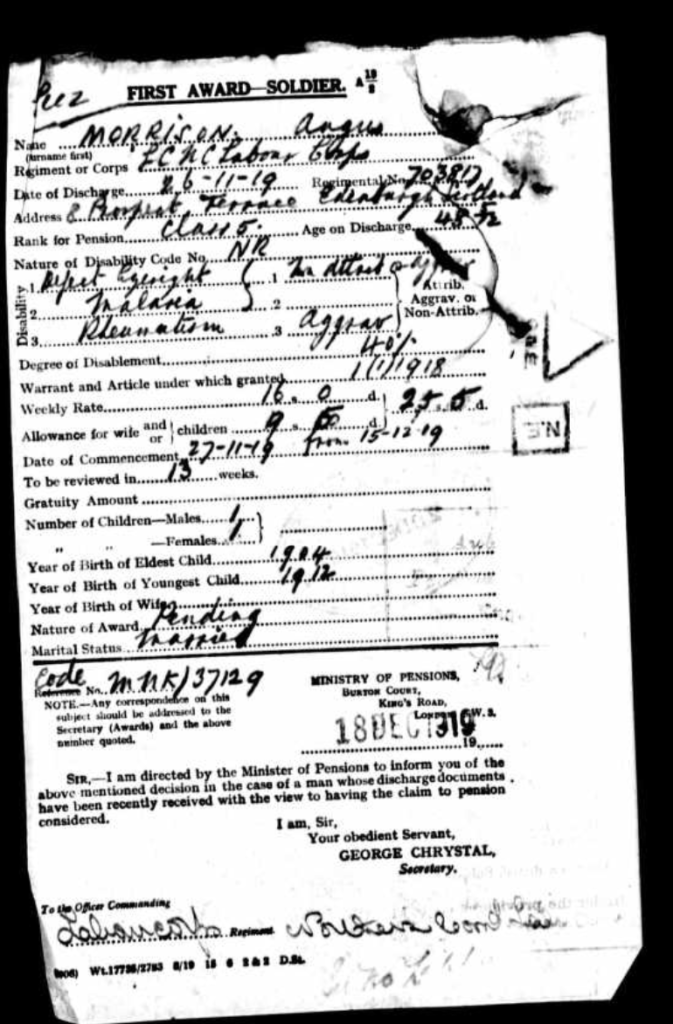 FIRST AWARD—SOLDIER. A 19/8
Name MORRISON. Angus
(surname first)
Regiment or Corps Labour Corps
Date of Discharge 26-11-19 Regimental No. 703817
Address 8 Prospect Terrace Edinburgh Scotland
Rank for Pension Class 5. Age on Discharge 48
Nature of Disability Code No. NR
Disability
1. Defect Eyesight 1
2 Malaria 2
3. Rheumatism 3 Aggrav
Attrib.
Aggrav. or
Non-Attrib.
Degree of Disablement 40%
Warrant and Article under which granted 1(1)1918
Weekly Rate 16 s. 0 d.
Allowance for wife and/or children 9 s. 5 d. 25. 5 d.
Date of Commencement 27-11-19 from 15-12-19
To be reviewed in 13 weeks.
Gratuity Amount
Number of Children—Males 1
„ „ —Females 1
Year of Birth of Eldest Child 1904
Year of Birth of Youngest Child 1912
Year of Birth of Wife
Nature of Award Pending
Marital Status Married
N.E.
Code
Reference No. M NK/37129
NOTE.—Any correspondence on this
subject should be addressed to the
Secretary (Awards) and the above
number quoted.
MINISTRY OF PENSIONS,
BURTON COURT,
KING'S ROAD,
LONDON, S.W.3.
18 DEC 1919
19
SIR,—I am directed by the Minister of Pensions to inform you of the
above mentioned decision in the case of a man whose discharge documents
have been recently received with the view to having the claim to pension
considered.
I am, Sir,
Your obedient Servant,
GEORGE CHRYSTAL,
Secretary.
To the Officer Commanding
Labour Corps Regiment
(906) Wt.17736/2783 6/19 15 6 2&2 D.St.